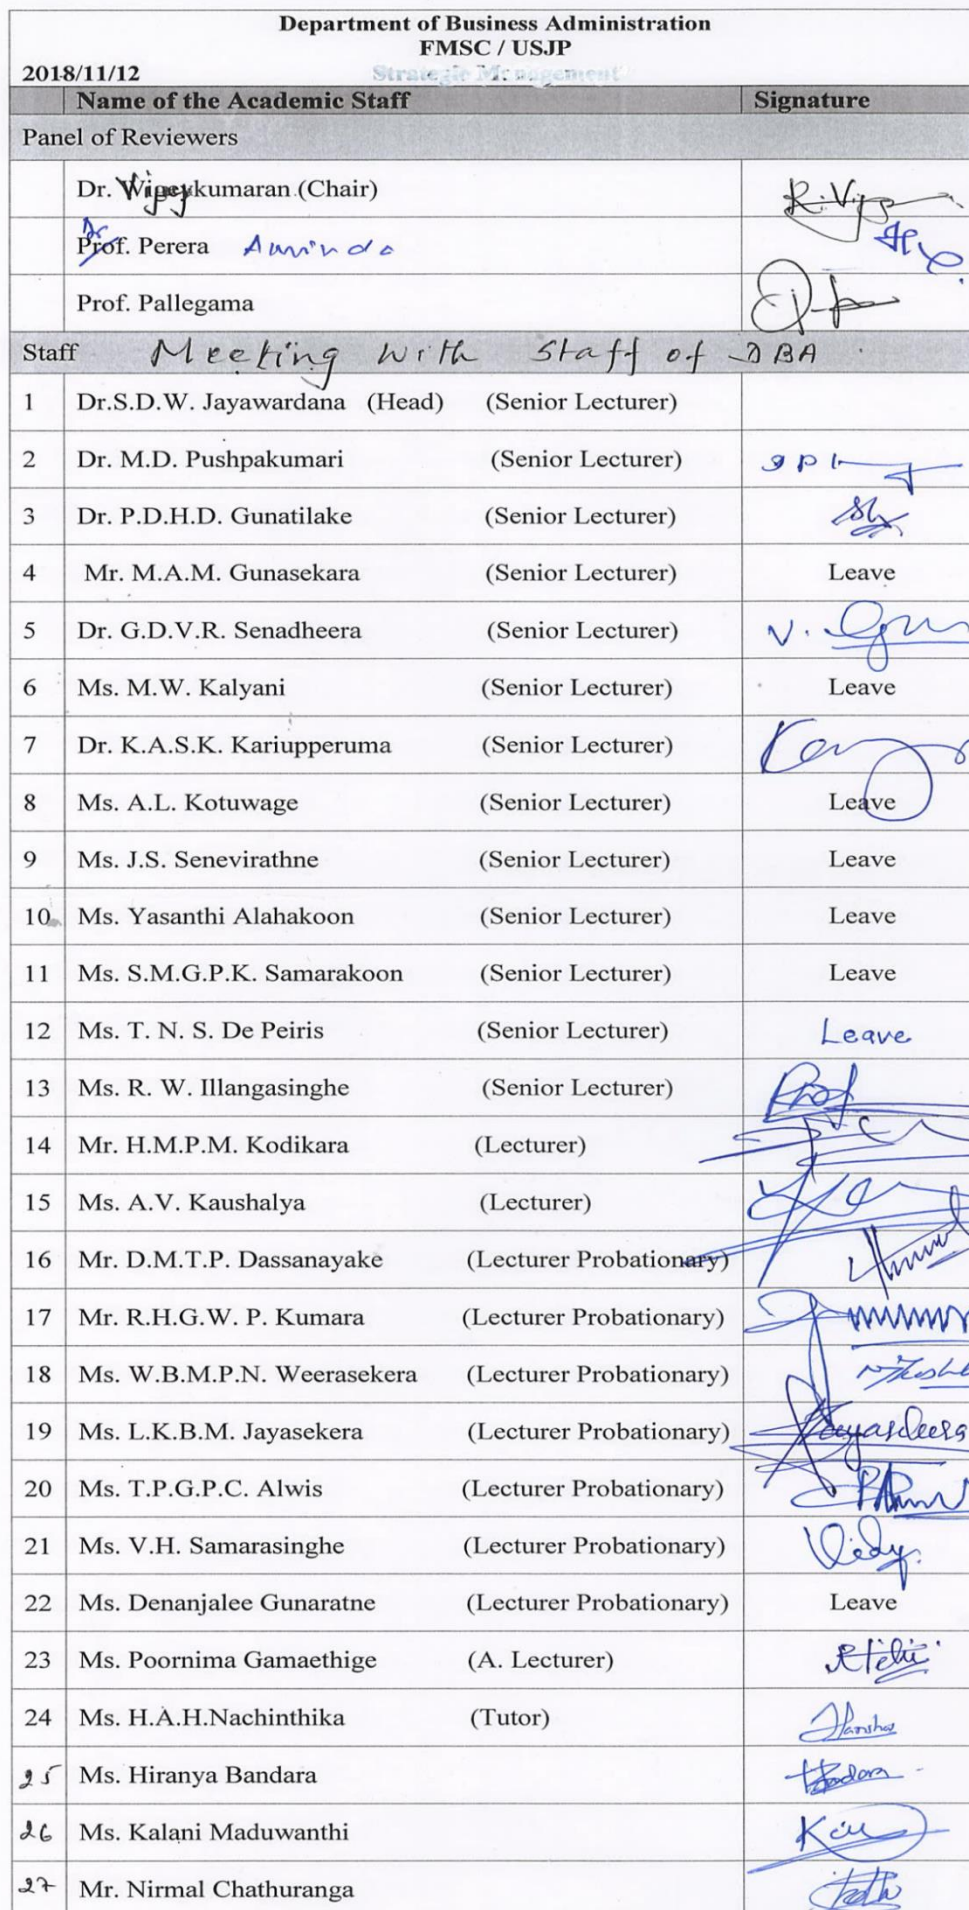 Department of Business Administration
FMSC / USJP
2018/11/12 Strategic Management
Name of the Academic Staff Signature
Panel of Reviewers
Dr. Vijeykumaran (Chair) R. Vijey
Dr Prof. Perera Aminda
Prof. Pallegama
Staff Meeting with Staff of DBA
1 Dr.S.D.W. Jayawardana (Head) (Senior Lecturer)
2 Dr. M.D. Pushpakumari (Senior Lecturer)
3 Dr. P.D.H.D. Gunatilake (Senior Lecturer)
4 Mr. M.A.M. Gunasekara (Senior Lecturer) Leave
5 Dr. G.D.V.R. Senadheera (Senior Lecturer)
6 Ms. M.W. Kalyani (Senior Lecturer) Leave
7 Dr. K.A.S.K. Kariupperuma (Senior Lecturer)
8 Ms. A.L. Kotuwage (Senior Lecturer) Leave
9 Ms. J.S. Senevirathne (Senior Lecturer) Leave
10 Ms. Yasanthi Alahakoon (Senior Lecturer) Leave
11 Ms. S.M.G.P.K. Samarakoon (Senior Lecturer) Leave
12 Ms. T. N. S. De Peiris (Senior Lecturer) Leave
13 Ms. R. W. Illangasinghe (Senior Lecturer)
14 Mr. H.M.P.M. Kodikara (Lecturer)
15 Ms. A.V. Kaushalya (Lecturer)
16 Mr. D.M.T.P. Dassanayake (Lecturer Probationary)
17 Mr. R.H.G.W. P. Kumara (Lecturer Probationary)
18 Ms. W.B.M.P.N. Weerasekera (Lecturer Probationary)
19 Ms. L.K.B.M. Jayasekera (Lecturer Probationary) Jayasekera
20 Ms. T.P.G.P.C. Alwis (Lecturer Probationary)
21 Ms. V.H. Samarasinghe (Lecturer Probationary) Vidy
22 Ms. Denanjalee Gunaratne (Lecturer Probationary) Leave
23 Ms. Poornima Gamaethige (A. Lecturer)
24 Ms. H.A.H.Nachinthika (Tutor)
25 Ms. Hiranya Bandara Bandara
26 Ms. Kalani Maduwanthi
27 Mr. Nirmal Chathuranga